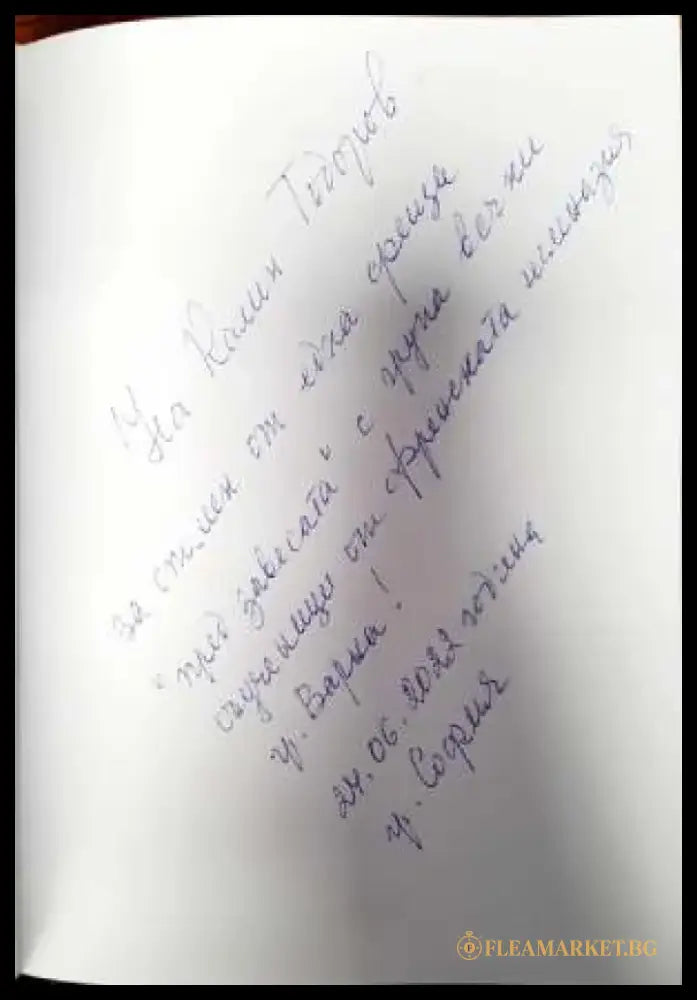 На Калин Тодоров
за от една среща
"пред завесата" с група вечни
съученици от Френската гимназия
гр. Варна!
24.06.2022 година
гр. София
FLEAMARKET.BG